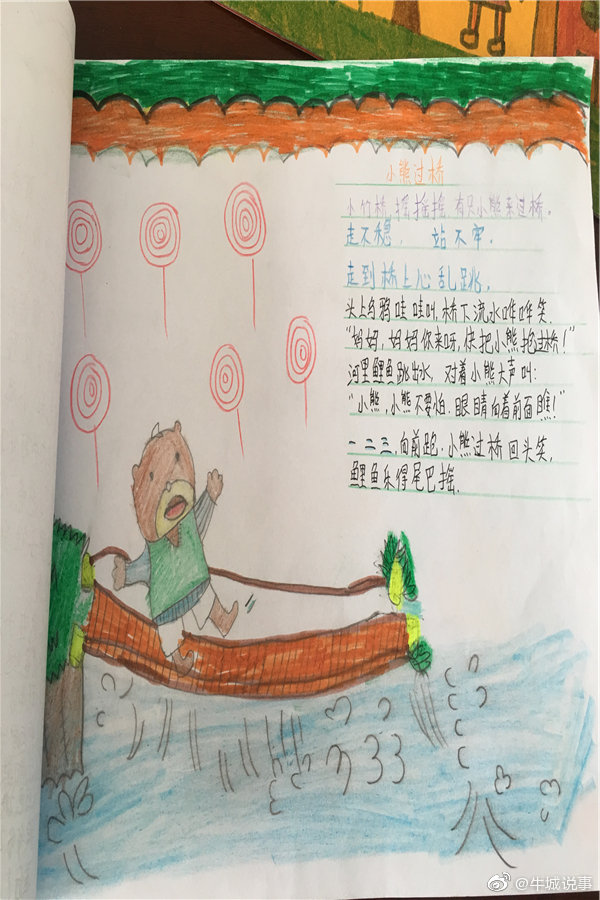 小熊过桥
小竹桥,摇摇摇,有只小熊来过桥。
走不稳, 站不牢,
走到桥上心乱跳。
头上乌鸦哇哇叫,桥下流水哗哗笑.
“妈妈,妈妈你来呀,快把小熊抱过桥!”
河里鲤鱼跳出水,对着小熊大声叫:
“小熊,小熊不要怕.眼睛向着前面瞧!”
一二三,向前跑.小熊过桥回头笑,
鲤鱼乐得尾巴摇.
@牛城说事